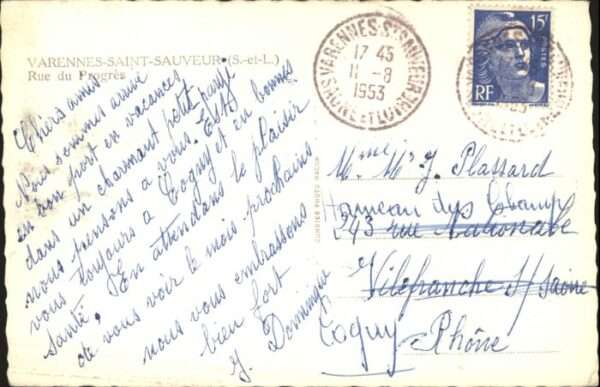 VARENNES-SAINT-SAUVEUR (S.-et-L.)
Rue du Progrès
VARENNES-St SAUVEUR
17 45
11 -8
1953
SAONE-ET-LOIRE
15F
POSTES
RF
Chers amis
Nous sommes arrivé
en bon port en vacances
dans un charmant petit pays
nous pensons a vous. Est
vous toujours a Cogny et en bonnes
santé, En attendans le plaisir
de vous voir le mois prochains
nous vous embrassons
bien fort
J. Dominique
Mme Mr J. Plassard
Hameau des
243 rue Nationale
Villefranche s/ Saône
Cogny
Rhône